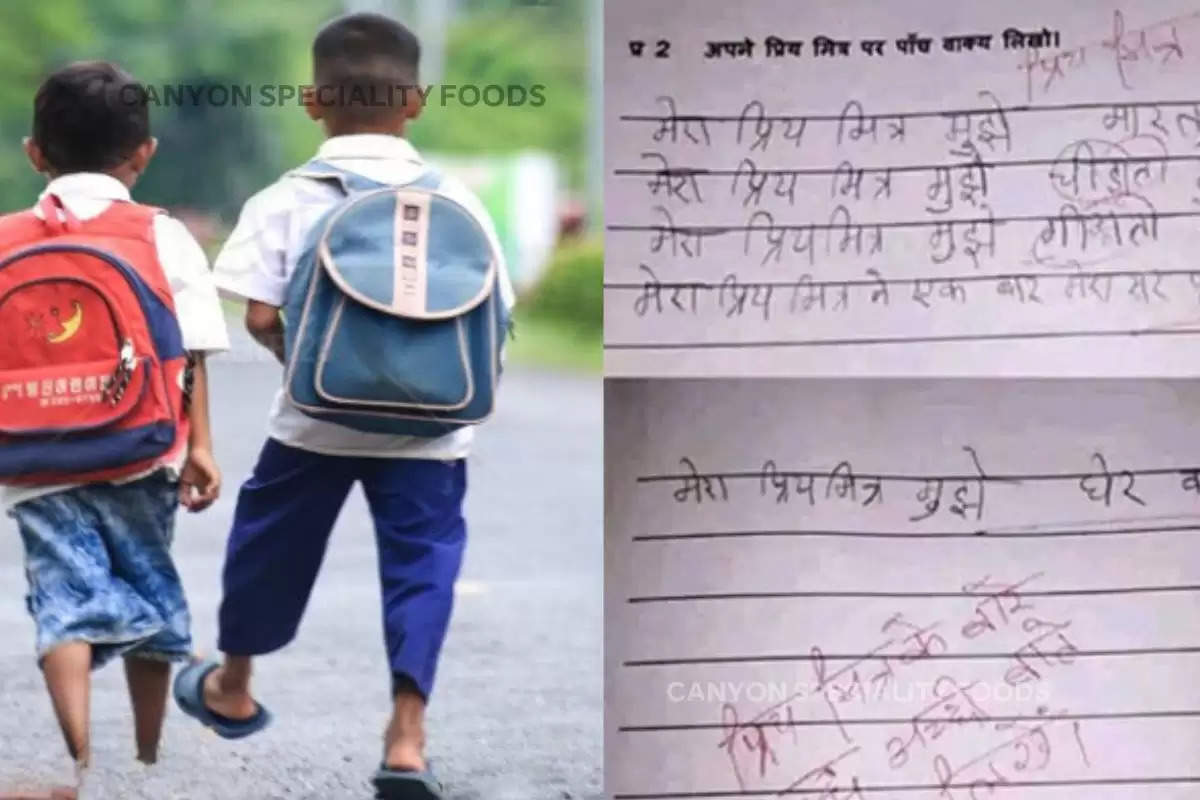 CANYON SPECIALITY FOODS
प्र 2 अपने प्रिय मित्र पर पाँच वाक्य लिखो।
प्रिय मित्र
मेरा प्रिय मित्र मुझे मारता
मेरा प्रिय मित्र मुझे घीडाता
मेरा प्रिय मित्र मुझे
मेरा प्रिय मित्र ने एक बार मेरा सर
मेरा प्रिय मित्र मुझे घेर
प्रिय मित्र के बारे
अच्छी बाते
लिखो।
CANYON SPECIALITY FOODS